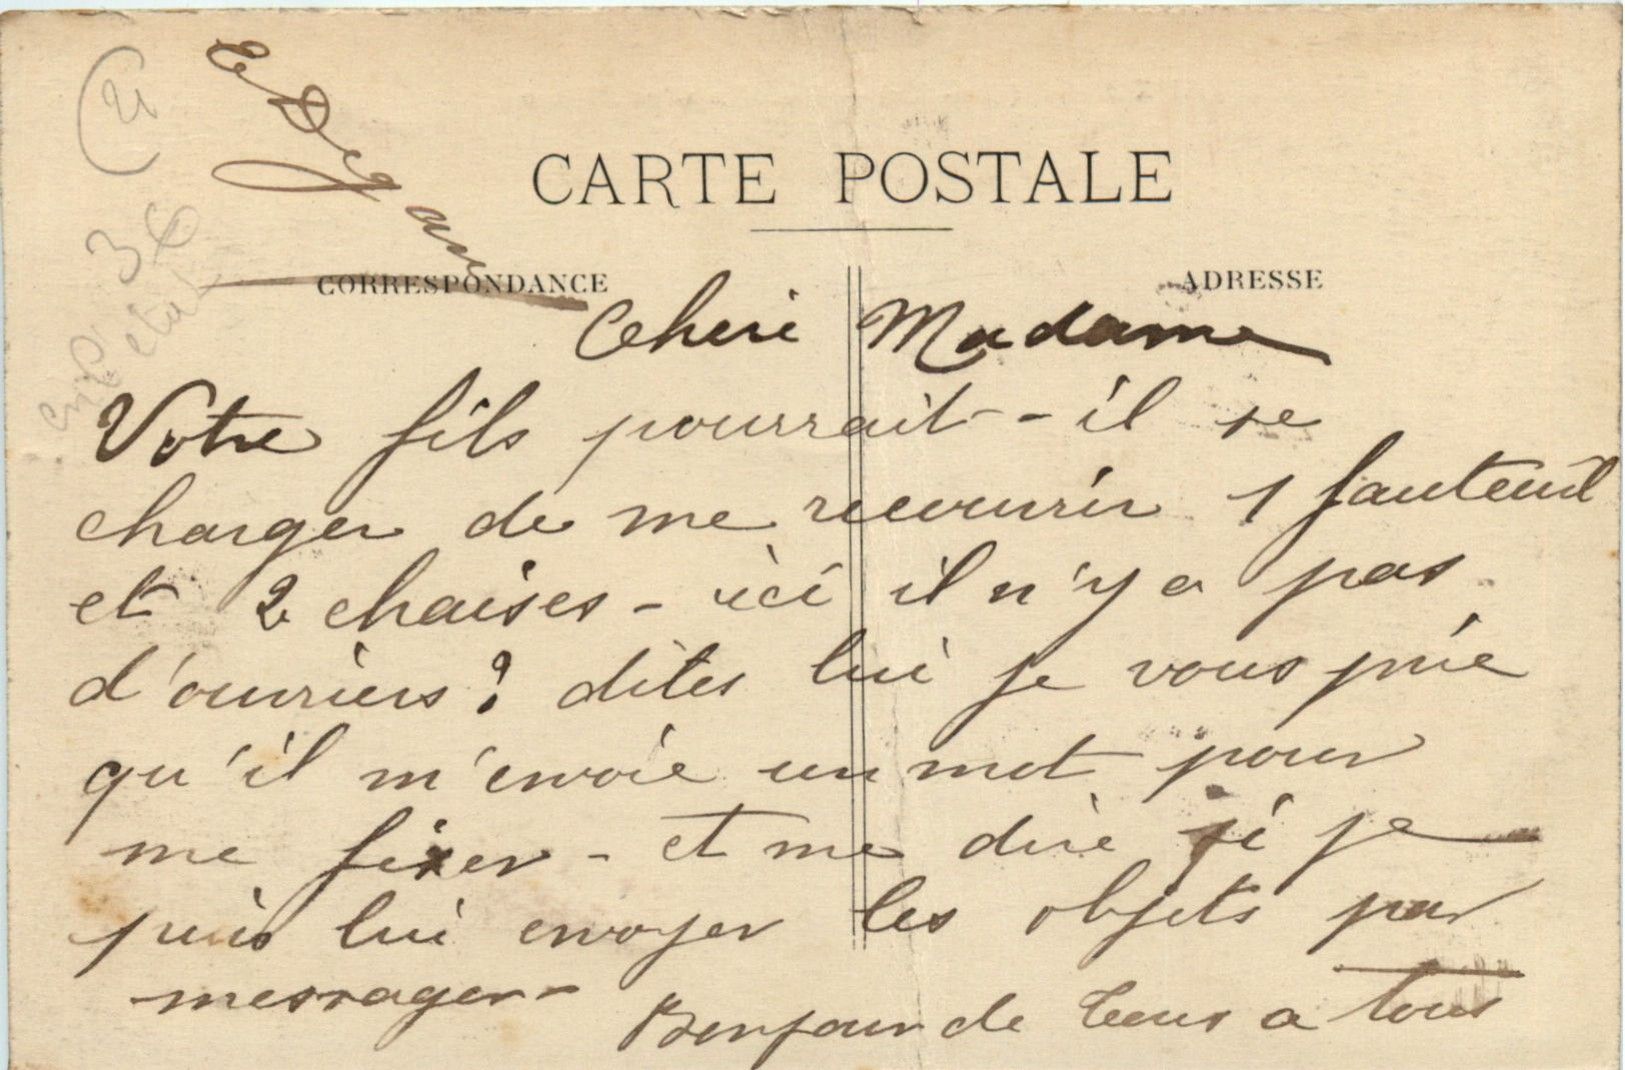 CARTE POSTALE
CORRESPONDANCE
ADRESSE
Chere Madame
Votre fils pourrait-il se
charger de me recouvrir 1 fauteuil
et 2 chaises - ici il n'y a pas
d'ouvriers? dites lui je vous prie
qu'il m'envoie un mot pour
me fixer - et me dire si je
puis lui envoyer les objets par
messager -
Bonjour de tous a tous
3€